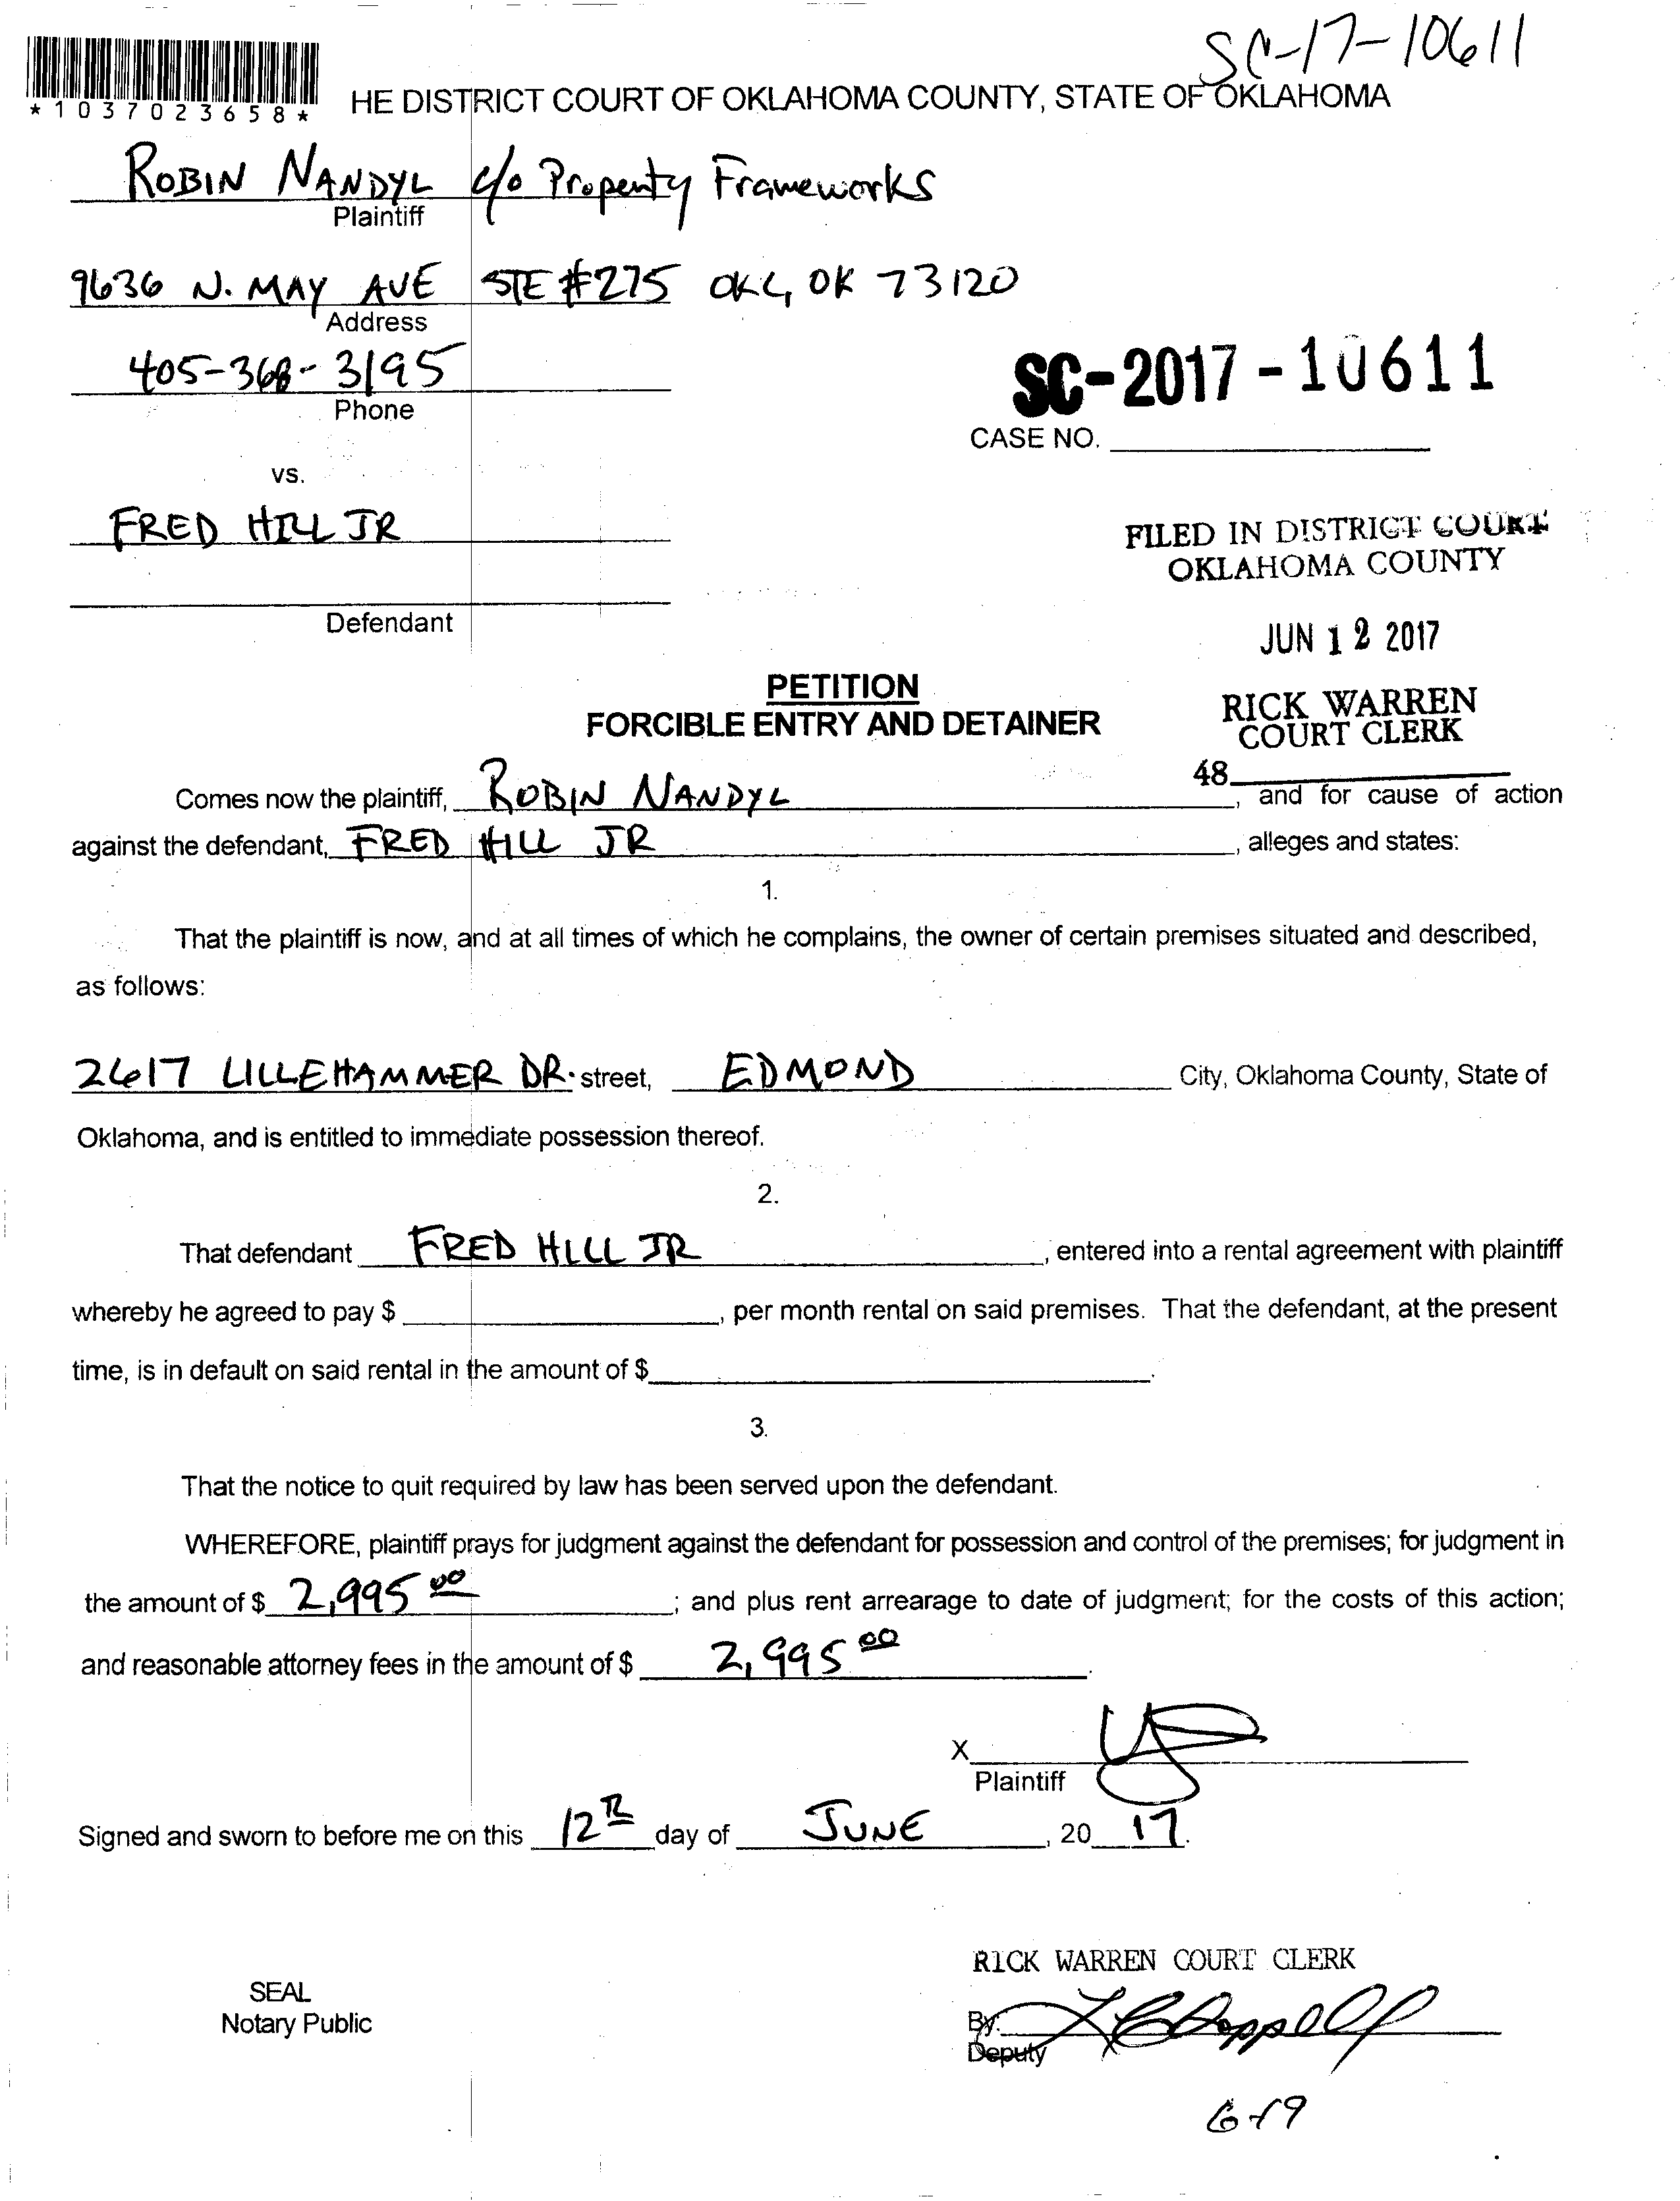 SC-17-10611
*1037023658*
HE DISTRICT COURT OF OKLAHOMA COUNTY, STATE OF OKLAHOMA
ROBIN NANDYL c/o Property Frameworks
Plaintiff
9636 N. MAY AVE STE #275 OKC, OK 73120
Address
405-368-3195
Phone
SC-2017-10611
CASE NO.
vs.
FRED HILL JR
Defendant
FILED IN DISTRICT COURT
OKLAHOMA COUNTY
JUN 12 2017
RICK WARREN
COURT CLERK
48
PETITION
FORCIBLE ENTRY AND DETAINER
Comes now the plaintiff, ROBIN NANDYL, and for cause of action
against the defendant, FRED HILL JR, alleges and states:
1.
That the plaintiff is now, and at all times of which he complains, the owner of certain premises situated and described,
as follows:
2617 LILLEHAMMER DR. street, EDMOND City, Oklahoma County, State of
Oklahoma, and is entitled to immediate possession thereof.
2.
That defendant FRED HILL JR, entered into a rental agreement with plaintiff
whereby he agreed to pay $, per month rental on said premises. That the defendant, at the present
time, is in default on said rental in the amount of $.
3.
That the notice to quit required by law has been served upon the defendant.
WHEREFORE, plaintiff prays for judgment against the defendant for possession and control of the premises; for judgment in
the amount of $ 2,995 00; and plus rent arrearage to date of judgment; for the costs of this action;
and reasonable attorney fees in the amount of $ 2,995 00.
X
Plaintiff
Signed and sworn to before me on this 12th day of JUNE, 20 17.
RICK WARREN COURT CLERK
SEAL
Notary Public
By.
Deputy